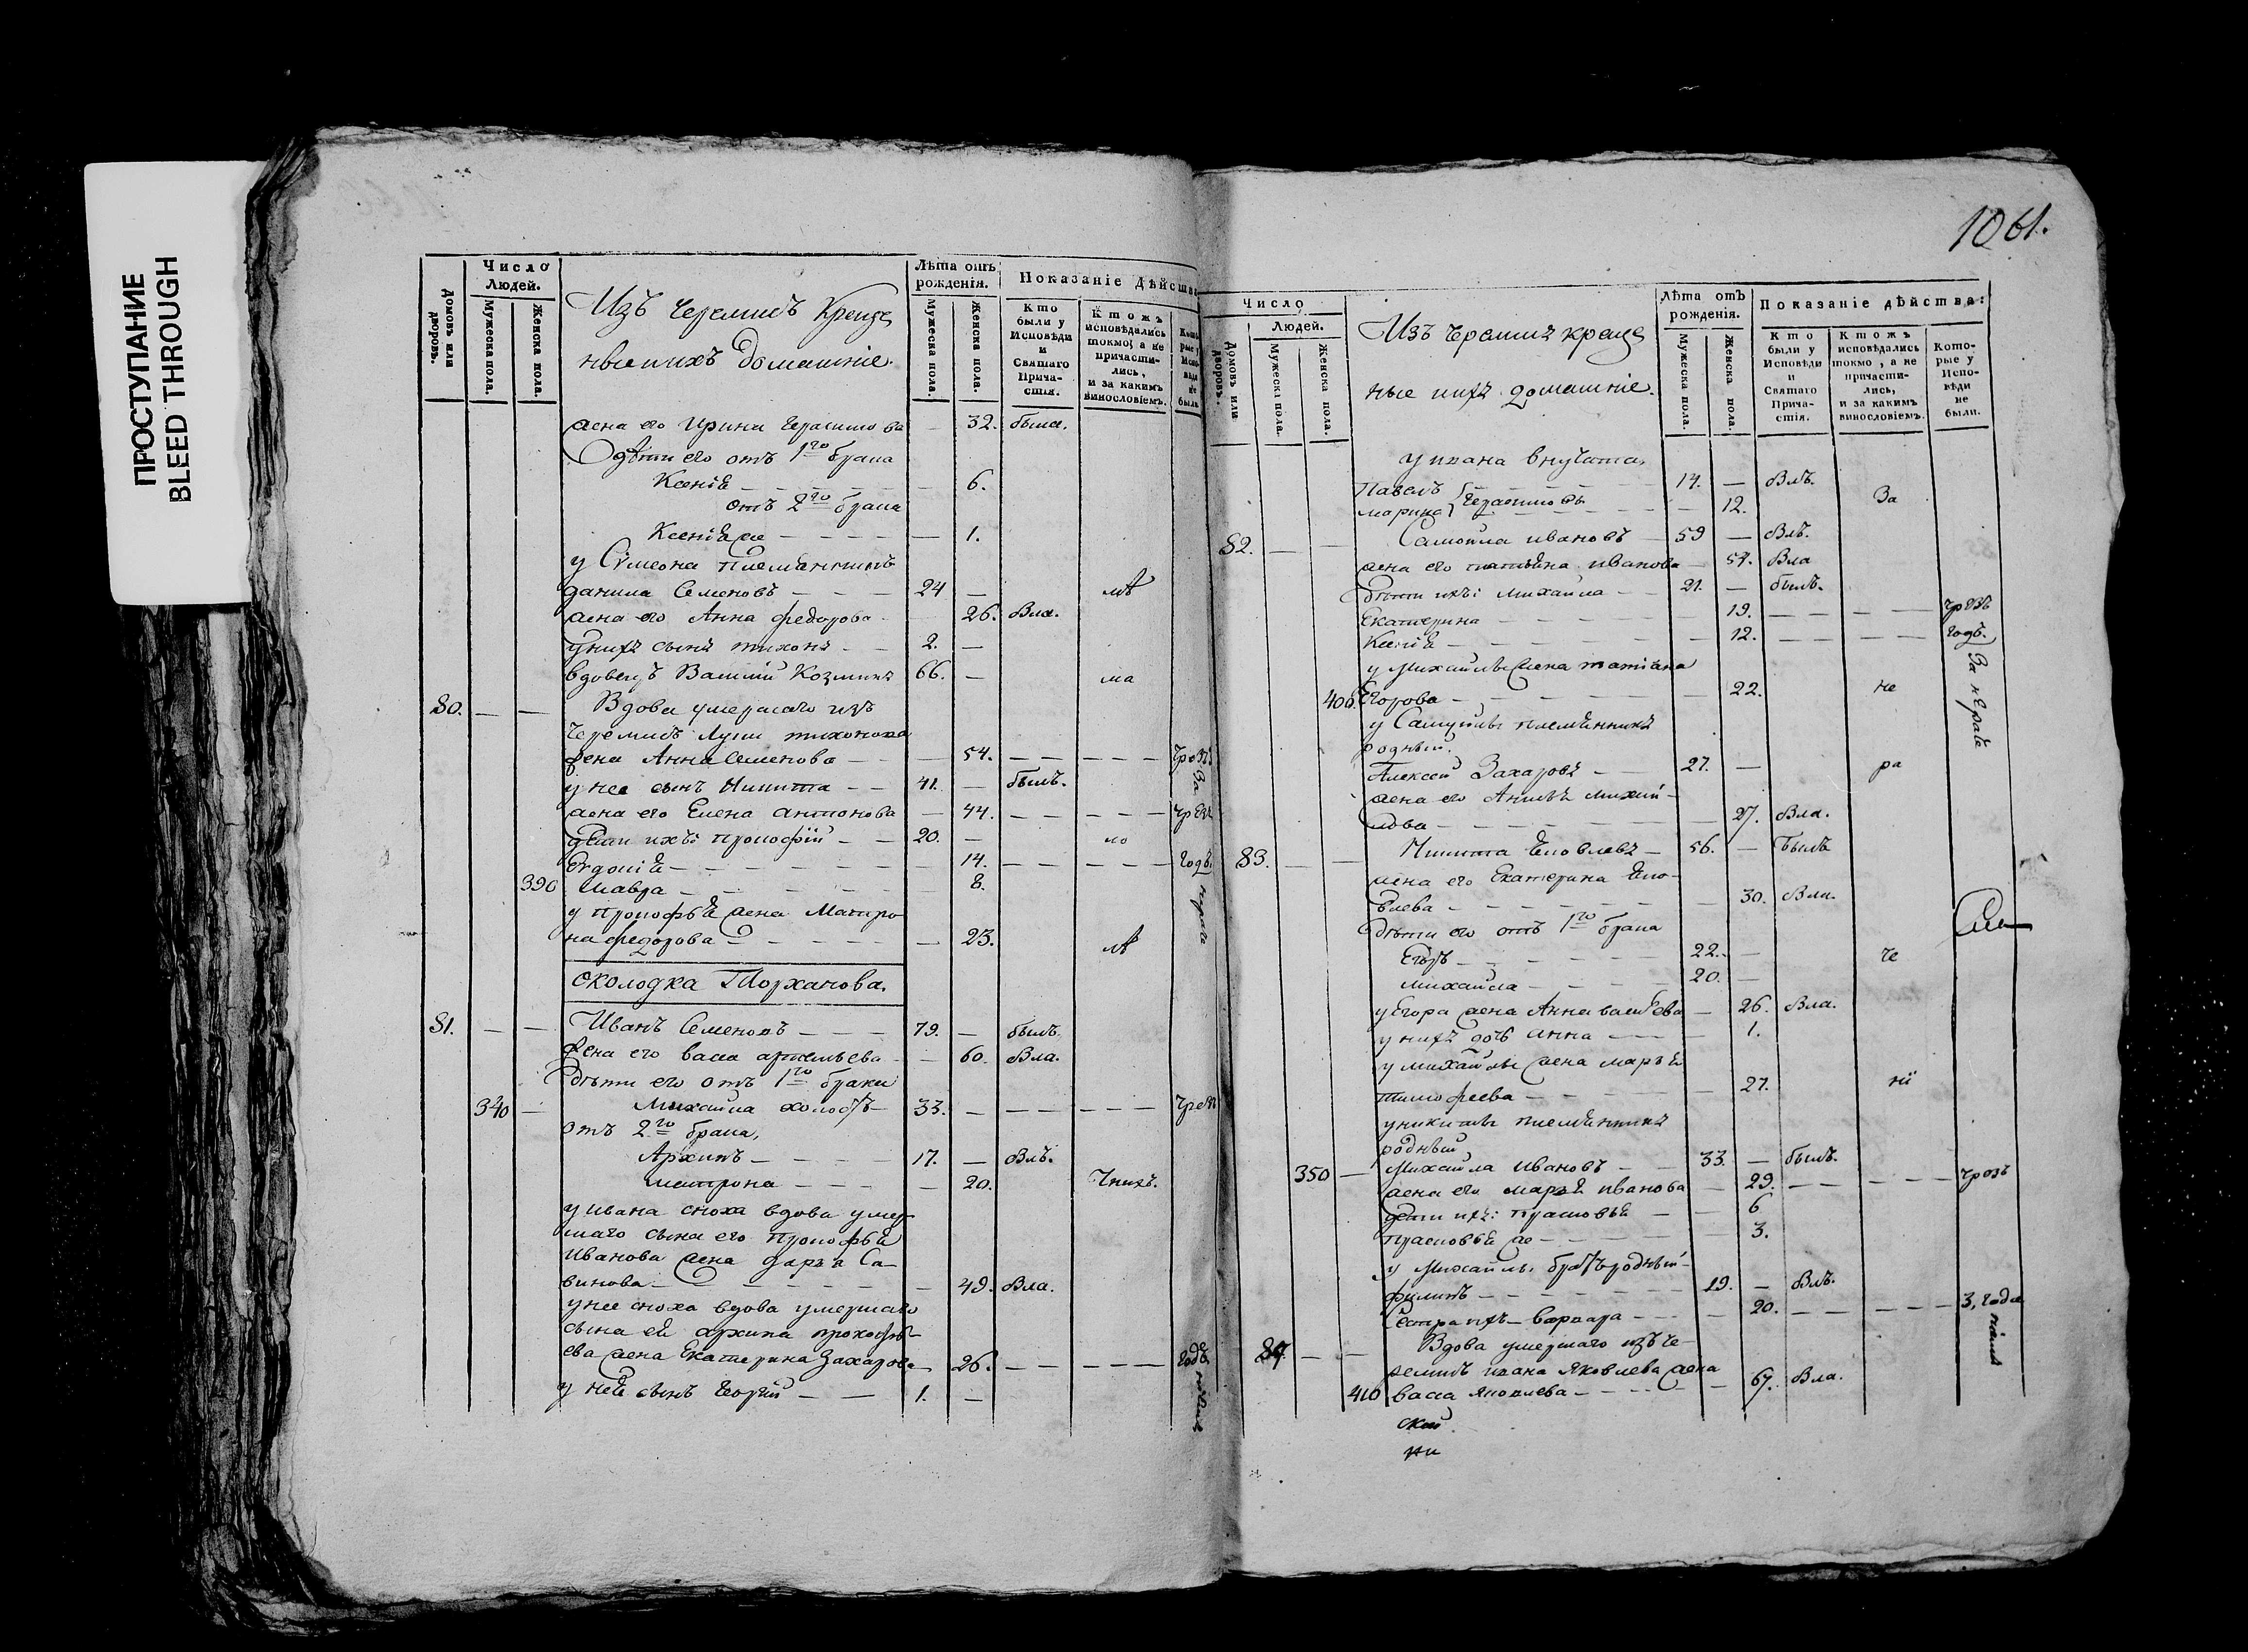 ПРОСТУПАНИЕ
BLEED THROUGH
1061.
Число
Людей.
Домовъ или дворовъ.
Мужеска пола.
Женска пола.
Изъ черемисъ креще
ные ихъ домашніе.
Лѣта отъ рожденія.
Мужеска пола.
Женска пола.
Показаніе Дѣйства
Кто были у Исповѣди и Святаго Причастія.
Ктожъ исповѣдались токмо, а не причастились, и за какимъ винословіемъ.
жена его Ирина Герасимова — 32. была.
Дѣти его отъ 1го брака
Ксеніѣ — 6.
отъ 2го брака
Ксеніѣ же — 1.
у Сѵмеона племянникъ
данила Семеновъ — 24 —
жена его Анна федорова 26. Бла.
у нихъ сынъ тихонъ 2. —
вдовецъ Василій Козминъ 66. — ма
80. — — Вдова умершаго изъ
черемисъ Луки тихонова
жена Анна Семенова — 54. — — —
у нее сынъ Никита — 41. — былъ.
жена его Елена антонова — 44. — — —
дѣти ихъ: прокофій — 20. — ло
Евдокіѣ — 14. — — — годъ.
390 Мавра — 8.
у прокофьѣ жена Матро
на федорова — 23.
околодка Торханова.
81. — — Иванъ Семеновъ — 79. — былъ.
жена его васса артемьева — 60. Бла.
дѣти его отъ 1го брака
340 — Михайла холостъ — 33. — — —
отъ 2го брака,
Архипъ — 17. — Блъ.
матрона — 20.
у ивана сноха вдова умер
шаго сына его прокофьѣ
Иванова жена дарья Са-
винова — 49. Бла.
у нее сноха вдова умершаго
сына еѣ архипа прокофь-
ева жена Екатерина Захарова — 26. — — — годъ.
у неѣ сынъ георгій — 1. —
Число
Людей.
Домовъ или дворовъ.
Мужеска пола.
Женска пола.
Изъ черемисъ креще
ные ихъ домашніе.
Лѣта отъ рожденія.
Мужеска пола.
Женска пола.
Показаніе дѣйства:
Кто были у Исповѣди и Святаго Причастія.
Ктожъ исповѣдались токмо, а не причастились, и за какимъ винословіемъ.
Которые у Исповѣди не были.
у ивана внучата,
Павелъ 14. — Блъ.
марина Герасимовы — 12. За
82. — — Самойла ивановъ — 59 — Блъ.
жена его татьѣна иванова — 54. Бла
дѣти ихъ: михайла — 21. — былъ.
Екатерина — 19. — — —
Ксеніѣ — 12. — — — годъ.
у Михайлы жена татіана
400. Егорова — 22. не
у Самуйлы племѣнникъ
родный
Алексей Захаровъ — 27. — ра
жена его михай-
лова — 27. Бла.
83. — — Никита Яковлевъ — 56. — Былъ
жена его Екатерина Яко-
влева — 30. Бла.
дѣти его отъ 1го брака
Егоръ — 22. — че
михайла — 20. —
у Егора жена Анна — 26. Бла.
у нихъ дочь анна — 1.
у михайлы жена марьѣ
тимофеева — 27. ні
у никиты племѣнникъ
родный
350 — Михайла Ивановъ — 33. — былъ.
жена его марьѣ иванова — 29. — — —
дѣти ихъ: прасковьѣ — 6
прасковьѣ же — 3.
у Михайлы братъ родный
филипъ — 19. — Блъ.
Сестра ихъ варвара — 20. — — — 3, года
84. — — Вдова умершаго изъ че-
ремисъ ивана Яковлева жена
410 васса Яковлева — 67. Бла.